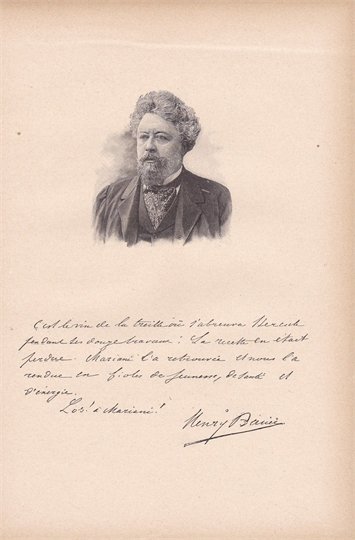 C'est le vin de la treille où s'abreuva Hercule
pendant ses douze travaux : La recette en était
perdue. Mariani l'a retrouvée et nous l'a
rendue en fioles de jeunesse, de santé et
d'énergie.
à Mariani !
Henry